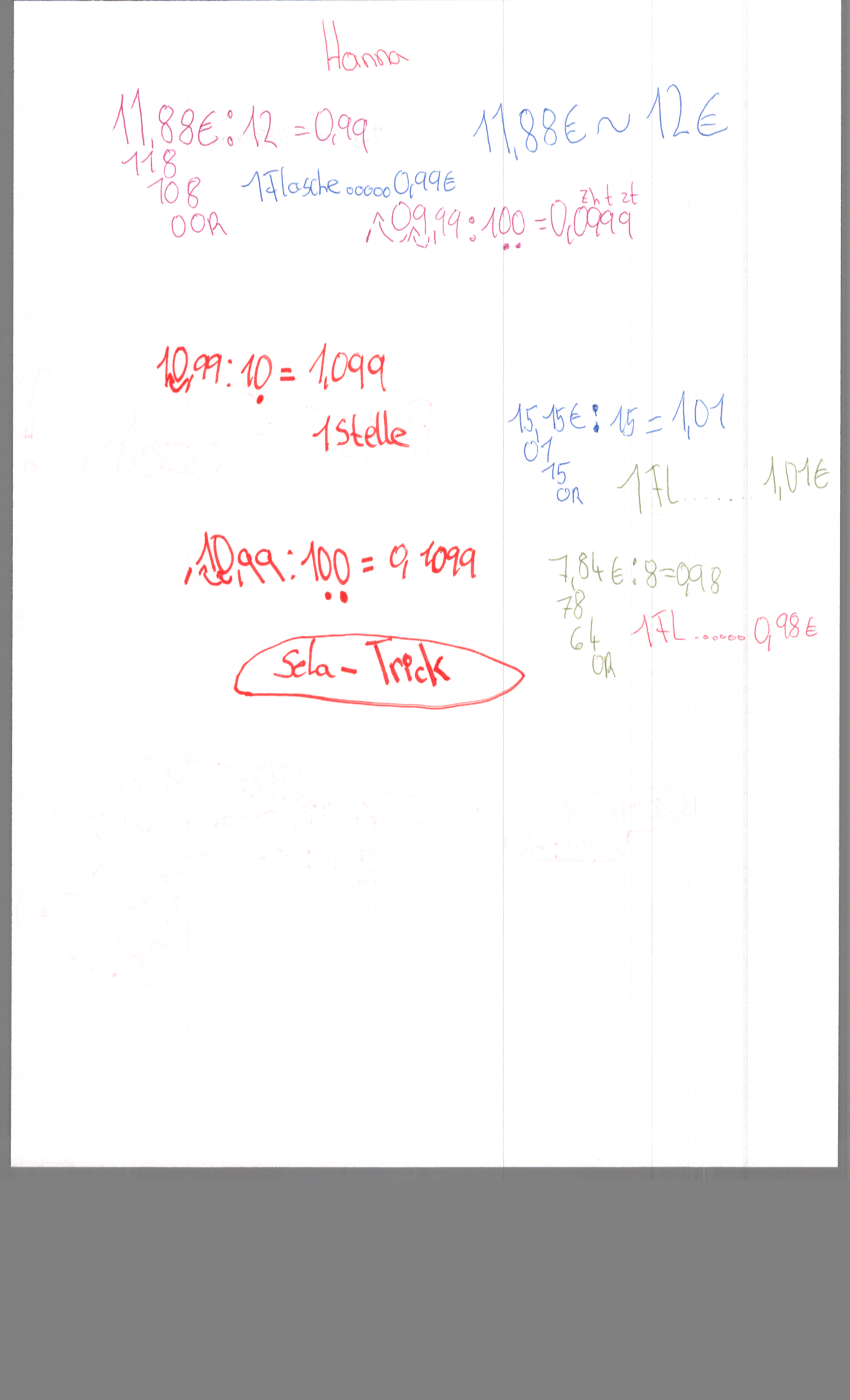 Hanna
11,88€:12 = 0,99
118
108
00R
11,88€ ~ 12€
1 Flasche.....0,99€
z h t zt
09,99:100 = 0,0999
10,99:10 = 1,099
1 Stelle
15,15€:15 = 1,01
01
15
0R
1 Fl........ 1,01€
10,99:100 = 0,1099
7,84€:8=0,98
78
64
0R
1 Fl....... 0,98€
Sela-Trick